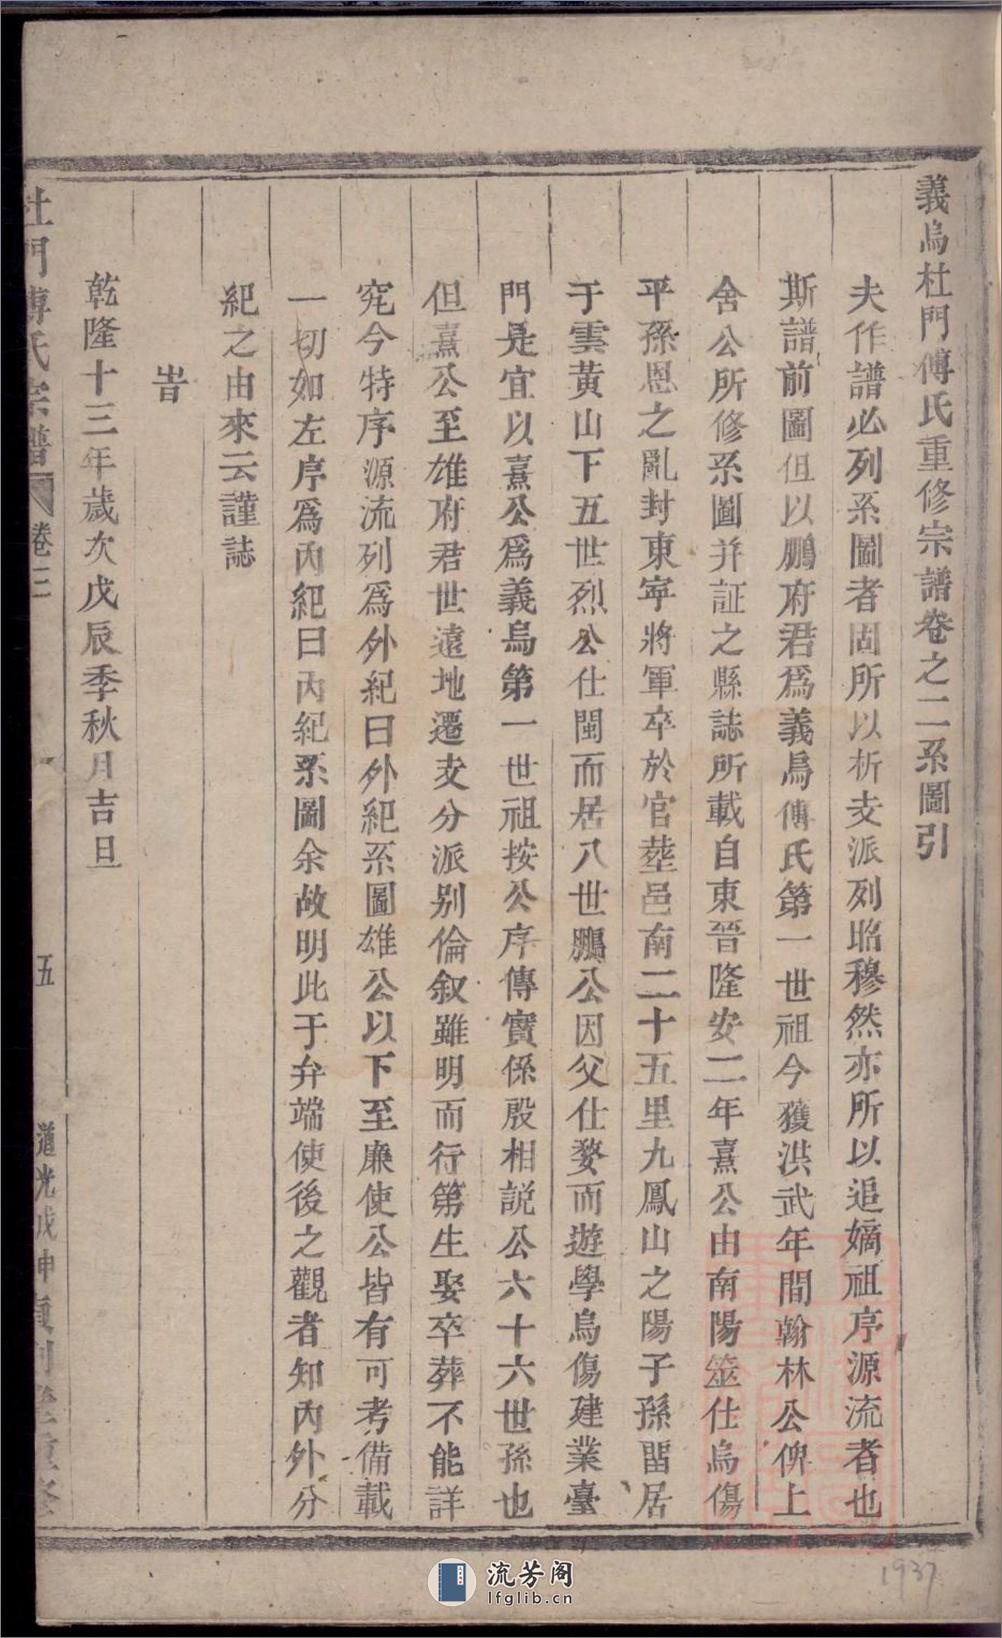 義烏杜門傅氏重修宗譜卷之二系圖引
夫作譜必列系圖者固所以析支派列昭穆然亦所以追嫡祖序源流者也
斯譜前圖但以鵬府君爲義烏傅氏第一世祖今獲洪武年間翰林公俾上
舍公所修系圖并証之縣誌所載自東晉隆安二年熹公由南陽筮仕烏傷
平孫恩之亂封東寧將軍卒於官塟邑南二十五里九鳳山之陽子孫留居
于雲黃山下五世烈公仕閩而居八世鵬公因父仕婺而遊學烏傷建業臺
門是宜以熹公爲義烏第一世祖按公序傳實係殷相説公六十六世孫也
但熹公至雄府君世遠地遷支分派别倫叙雖明而行第生娶卒葬不能詳
究今特序源流列爲外紀曰外紀系圖雄公以下至廉使公皆有可考備載
一切如左序爲内紀曰内紀系圖余故明此于弁端使後之觀者知内外分
紀之由來云謹誌
旹
乾隆十三年歲次戊辰季秋月吉旦
杜門傅氏宗譜 卷二 五 道光戊申重
流芳阁
lfglib.cn
1937